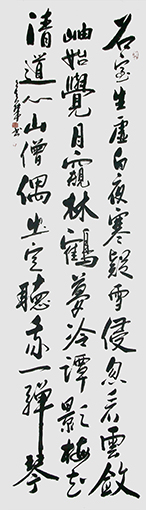 石室生虚白夜寒疑雪侵忽看雲斂
岫始覺月窺林鶴夢冷潭影梅花
清道心山僧偶坐定聽我一彈琴